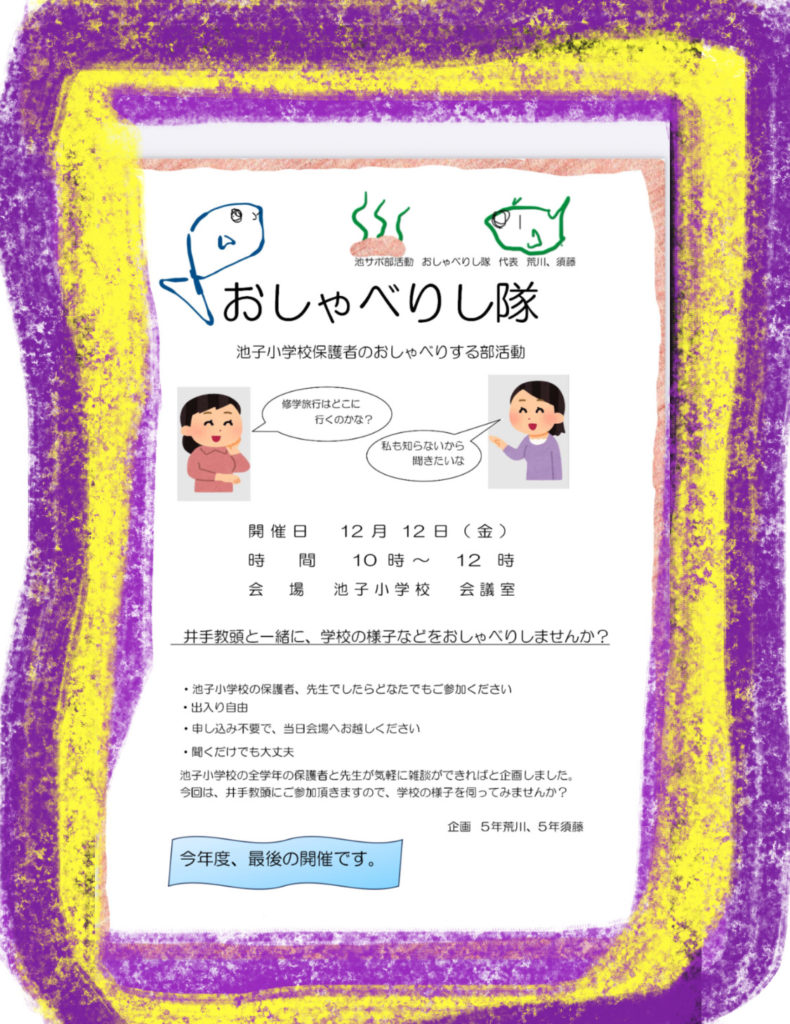 池サポ部活動 おしゃべりし隊 代表 荒川、須藤
おしゃべりし隊
池子小学校保護者のおしゃべりする部活動
修学旅行はどこに
行くのかな？
私も知らないから
聞きたいな
開催日 12月 12日（金）
時 間 10時～ 12時
会 場 池子小学校 会議室
井手教頭と一緒に、学校の様子などをおしゃべりしませんか？
・池子小学校の保護者、先生でしたらどなたでもご参加ください
・出入り自由
・申し込み不要で、当日会場へお越しください
・聞くだけでも大丈夫
池子小学校の全学年の保護者と先生が気軽に雑談ができればと企画しました。
今回は、井手教頭にご参加頂きますので、学校の様子を伺ってみませんか？
企画 ５年荒川、５年須藤
今年度、最後の開催です。